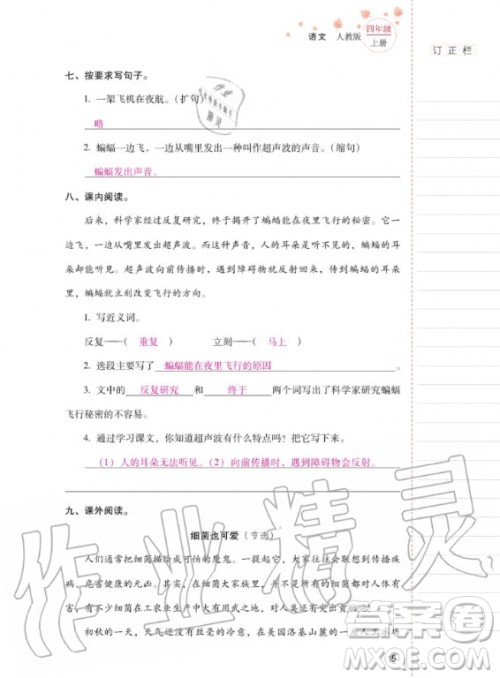 语文 人教版 四年级
上册
订正栏
七、按要求写句子。
1. 一架飞机在夜航。（扩句）
略
2. 蝙蝠一边飞，一边从嘴里发出一种叫作超声波的声音。（缩句）
蝙蝠发出声音。
八、课内阅读。
后来，科学家经过反复研究，终于揭开了蝙蝠能在夜里飞行的秘密。它一
边飞，一边从嘴里发出超声波。而这种声音，人的耳朵是听不见的，蝙蝠的耳
朵却能听见。超声波向前传播时，遇到障碍物就反射回来，传到蝙蝠的耳朵
里，蝙蝠就立刻改变飞行的方向。
1. 写近义词。
反复——（ 重复 ） 立刻——（ 马上 ）
2. 选段主要写了 蝙蝠能在夜里飞行的原因
3. 文中的 反复研究 和 终于 两个词写出了科学家研究蝙蝠
飞行秘密的不容易。
4. 通过学习课文，你知道超声波有什么特点吗？把它写下来。
（1）人的耳朵无法听见。（2）向前传播时，遇到障碍物会反射。
九、课外阅读。
细菌也可爱（节选）
人们通常把细菌描绘成可怕的魔鬼。一提起它，大家往往会联想到疾病、
危害健康的元凶。当然，细菌大家族里，危害人类的细菌只是一小部分，大
部分细菌在工农业生产中大有用武之地，对人类
初秋的一天，天气还没有丝毫的冷意，在美国洛基山麓的一
作业精灵
答案卷
MXQE.COM